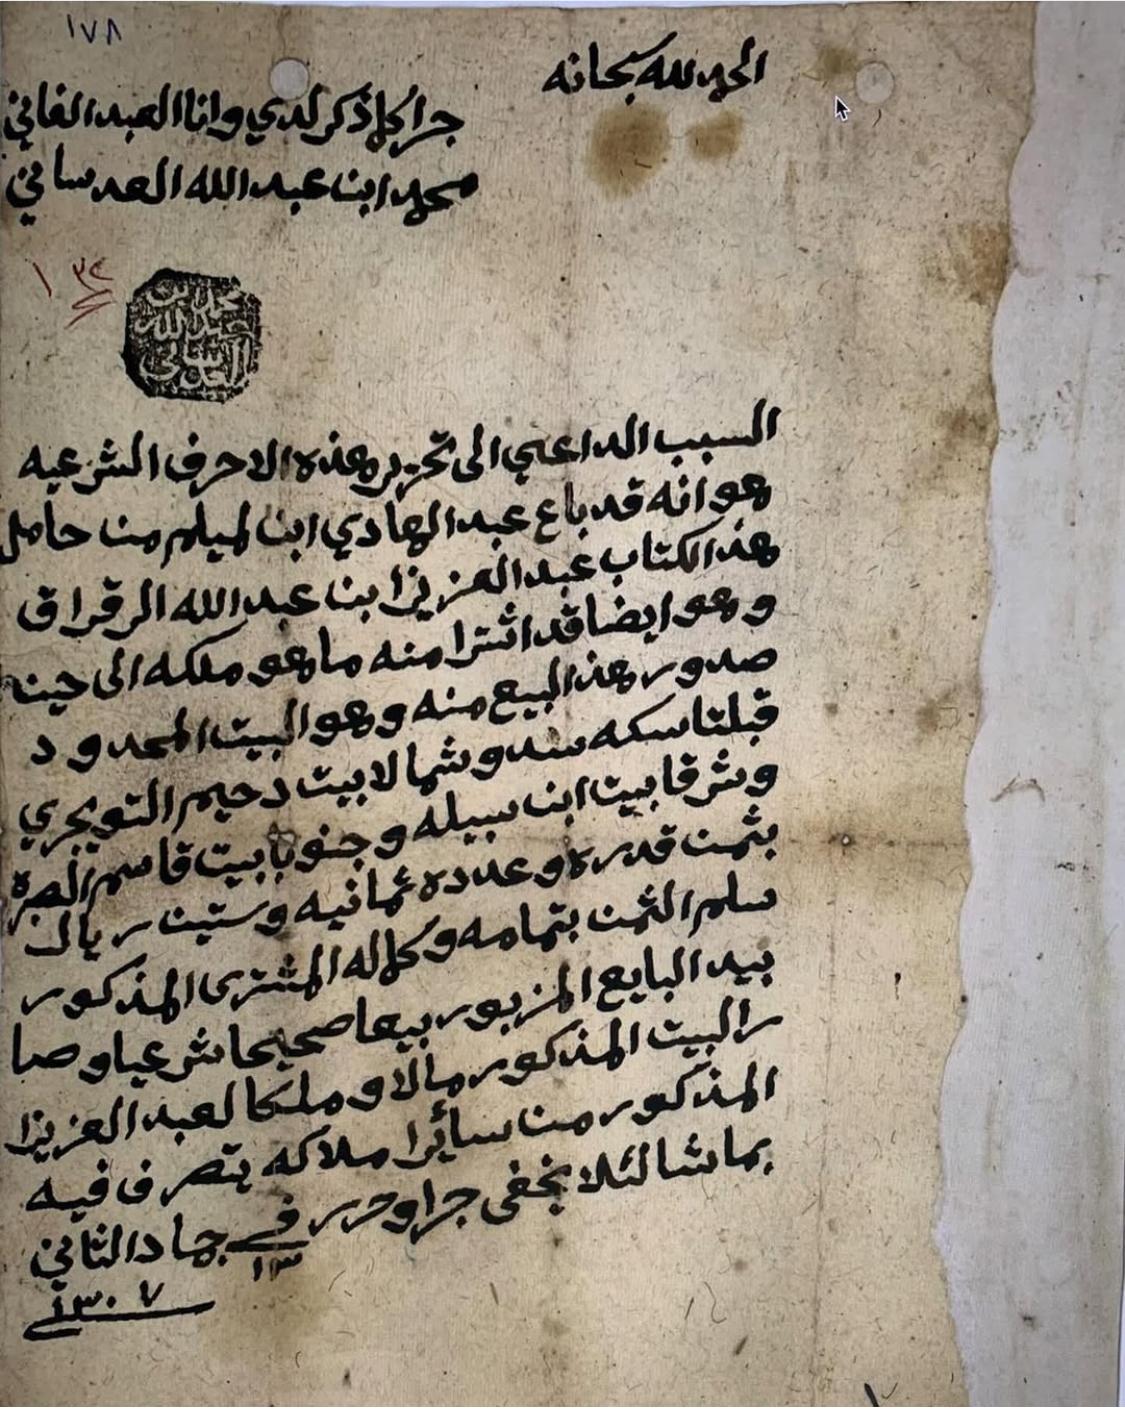 ١٧٨
الحمد لله سبحانه
جرا كل ذكر لدي وانا العبد الفاني
محمد ابن عبد الله العدساني
محمد بن
عبد الله
العدساني
السبب الداعي الى تحرير هذه الاحرف الشرعيه
هو انه قد باع عبد الهادي ابن لميلم من حامل
هذ الكتاب عبد العزيز ابن عبد الله الرقراق
وهو ايضا قد اشترا منه ما هو ملكه الى حين
صدور هذ البيع منه وهو البيت المحدود
قبلتا سكه سد وشمالا بيت دحيم التويجري
وشرقا بيت ابن سبيله وجنوبا بيت قاسم
بثمن قدره وعدده ثمانيه وستين ريال
سلم الثمن بتمامه وكماله المشترى المذكور
بيد البايع المزبور بيعا صحيحا شرعيا وصا
ر البيت المذكور مالا وملكا لعبد العزيز
المذكور من سائر املاكه يتصرف فيه
بما شا لئلا يخفى جرا وحرر في ١٣ جماد الثاني
١٣٠٧